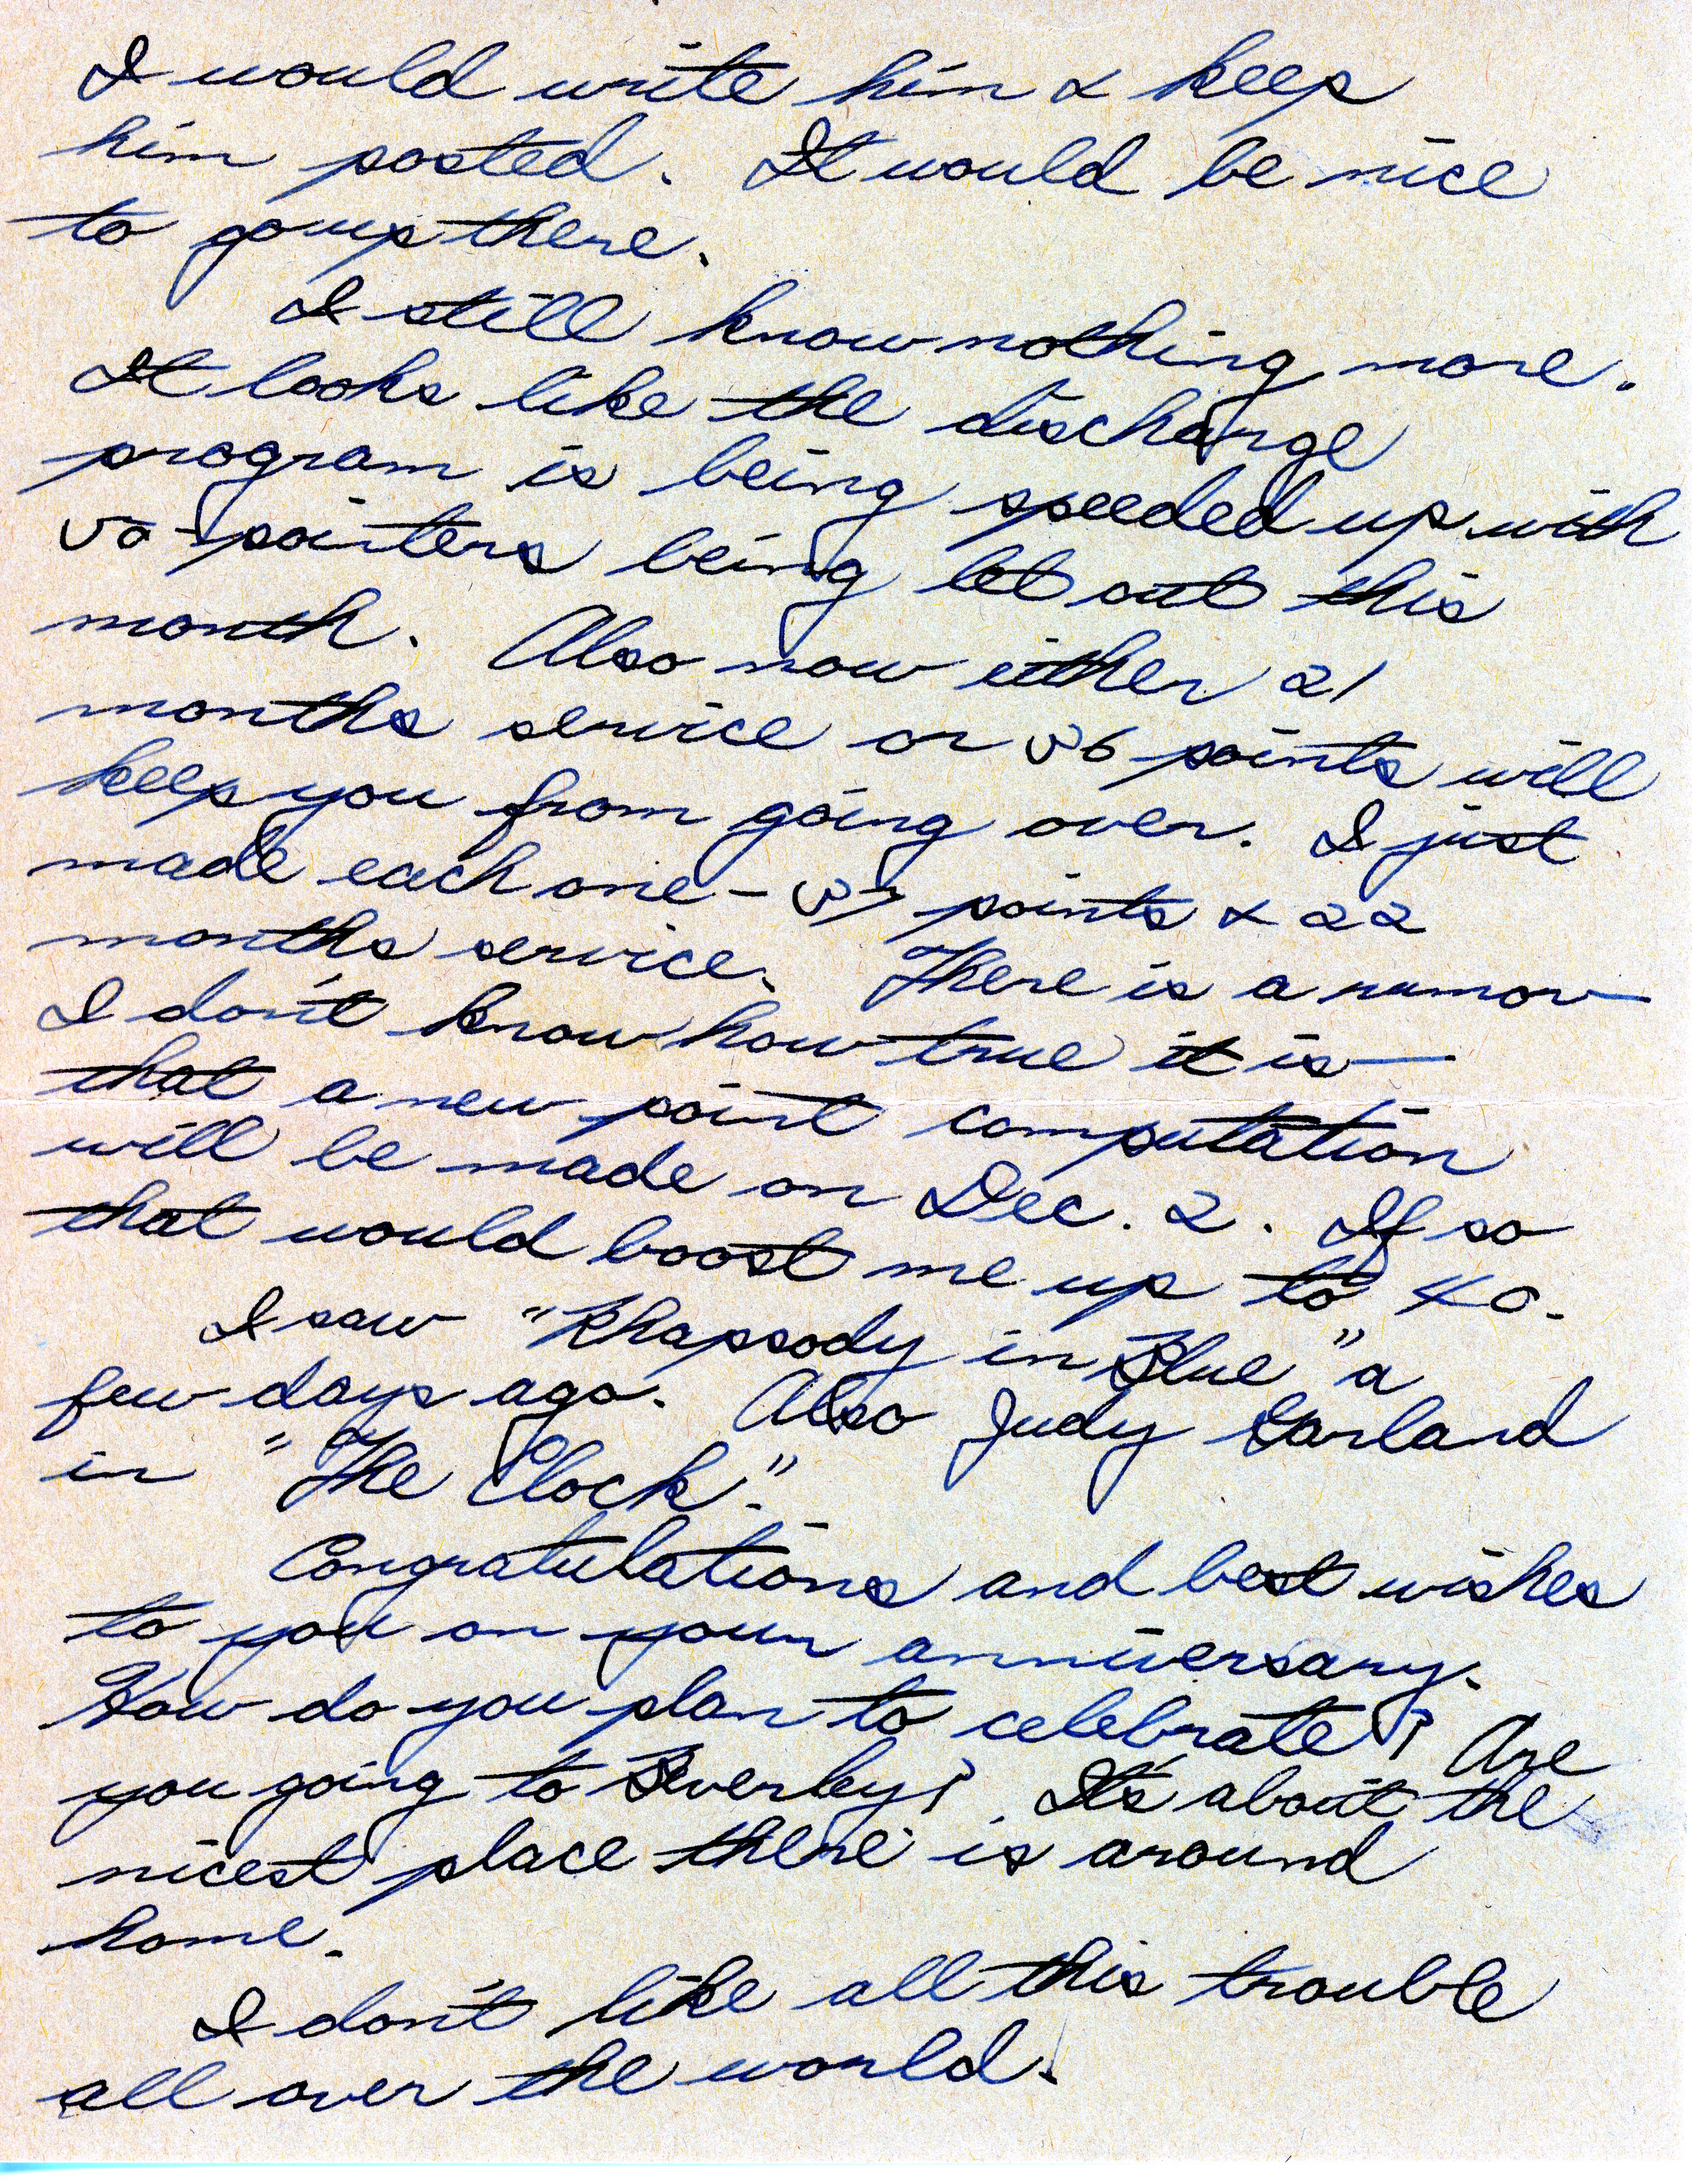 I would write him & keep
him posted. It would be nice
to go up there.
I still know nothing more.
It looks like the discharge
program is being speeded up with
50-pointers being let out this
month. Also now either 21
months service or 36 points will
keep you from going over. I just
made each one - 37 points & 22
months service. There is a rumor—
I don't know how true it is—
that a new point computation
will be made on Dec. 2. If so
that would boost me up to 40.
I saw "Rhapsody in Blue" a
few days ago. Also Judy Garland
in "The Clock".
Congratulations and best wishes
to you on your anniversary.
How do you plan to celebrate? Are
you going to Beverley? It's about the
nicest place there is around
home.
I don't like all this trouble
all over the world.